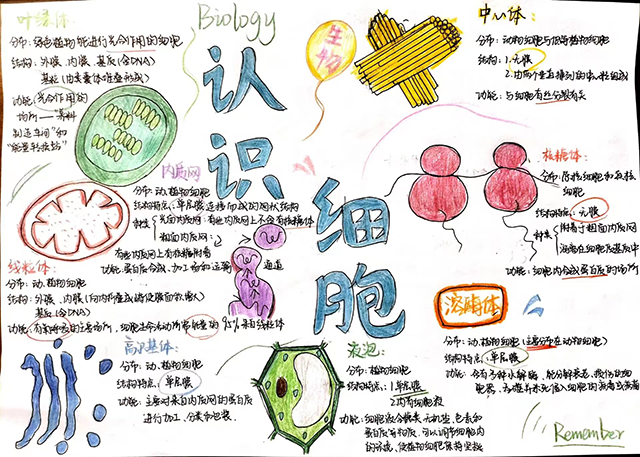 叶绿体:
分布: 绿色植物能进行光合作用的细胞
结构: 外膜、内膜、基质(含DNA)
基粒(由类囊体堆叠形成)
功能: 光合作用的
场所——"养料
制造车间"和"
能量转换站"
Biology
生物
认识细胞
中心体:
分布: 动物细胞与低等植物细胞
结构: 1.无膜
2.由两个垂直排列的中心粒组成
功能: 与细胞有丝分裂有关
核糖体:
分布: 原核细胞和真核
细胞
结构特点: 无膜
种类
附着于粗面内质网
游离在细胞质基质中
功能: 细胞内合成蛋白质的场所
内质网
分布: 动、植物细胞
结构特点: 单层膜连接而成的网状结构
种类
光面内质网: 有些内质网上不含有核糖体
粗面内质网:
有些内质网上有核糖体附着
功能: 蛋白质合成、加工场和运输
通道
线粒体:
分布: 动、植物细胞
结构: 外膜、内膜(向内折叠成嵴使膜面积增大)
基质(含DNA)
功能: 有氧呼吸的主要场所, 细胞生命活动所需能量的95%来自线粒体
高尔基体:
分布: 动、植物细胞
结构特点: 单层膜
功能: 主要对来自内质网的蛋白质
进行加工、分类和包装.
液泡:
分布: 植物细胞
结构特点: 1.单层膜
2.内有细胞液
功能: 细胞液含糖类、无机盐、色素和
蛋白质等物质, 可以调节细胞内
的环境, 使植物细胞保持坚挺
溶酶体
分布: 动、植物细胞(主要分布在动物细胞)
结构特点: 单层膜
功能: 含有多种水解酶, 能分解衰老、损伤的细
胞器, 吞噬并杀死侵入细胞的病毒或病菌
Remember